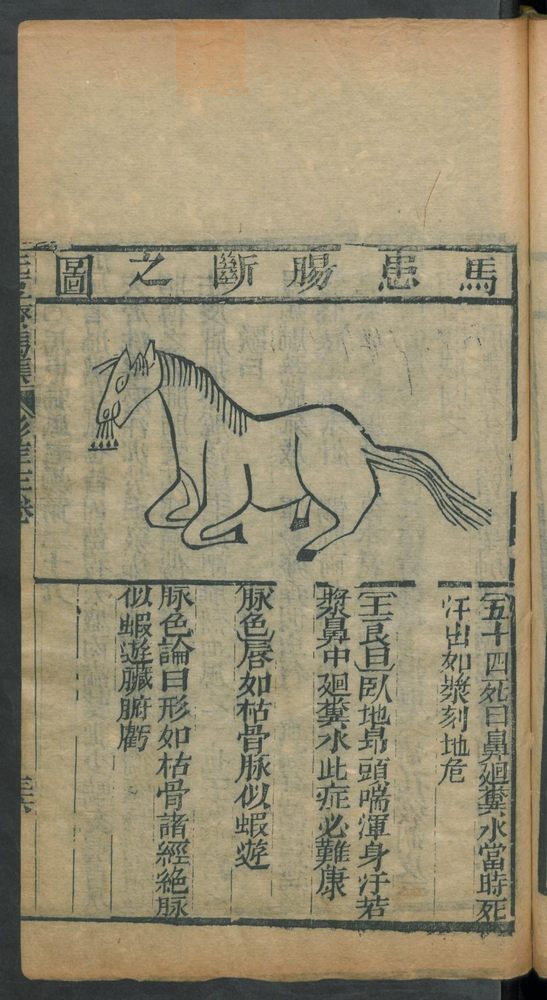 馬患腸斷之圖
五十四死曰鼻廻糞水當時死
汗出如漿刻地危
王良曰臥地昻頭喘渾身汗若
漿鼻中廻糞水此症必難康
脉色唇如枯骨脉似蝦遊
脉色論曰形如枯骨諸經絶脉
似蝦遊臟腑虧